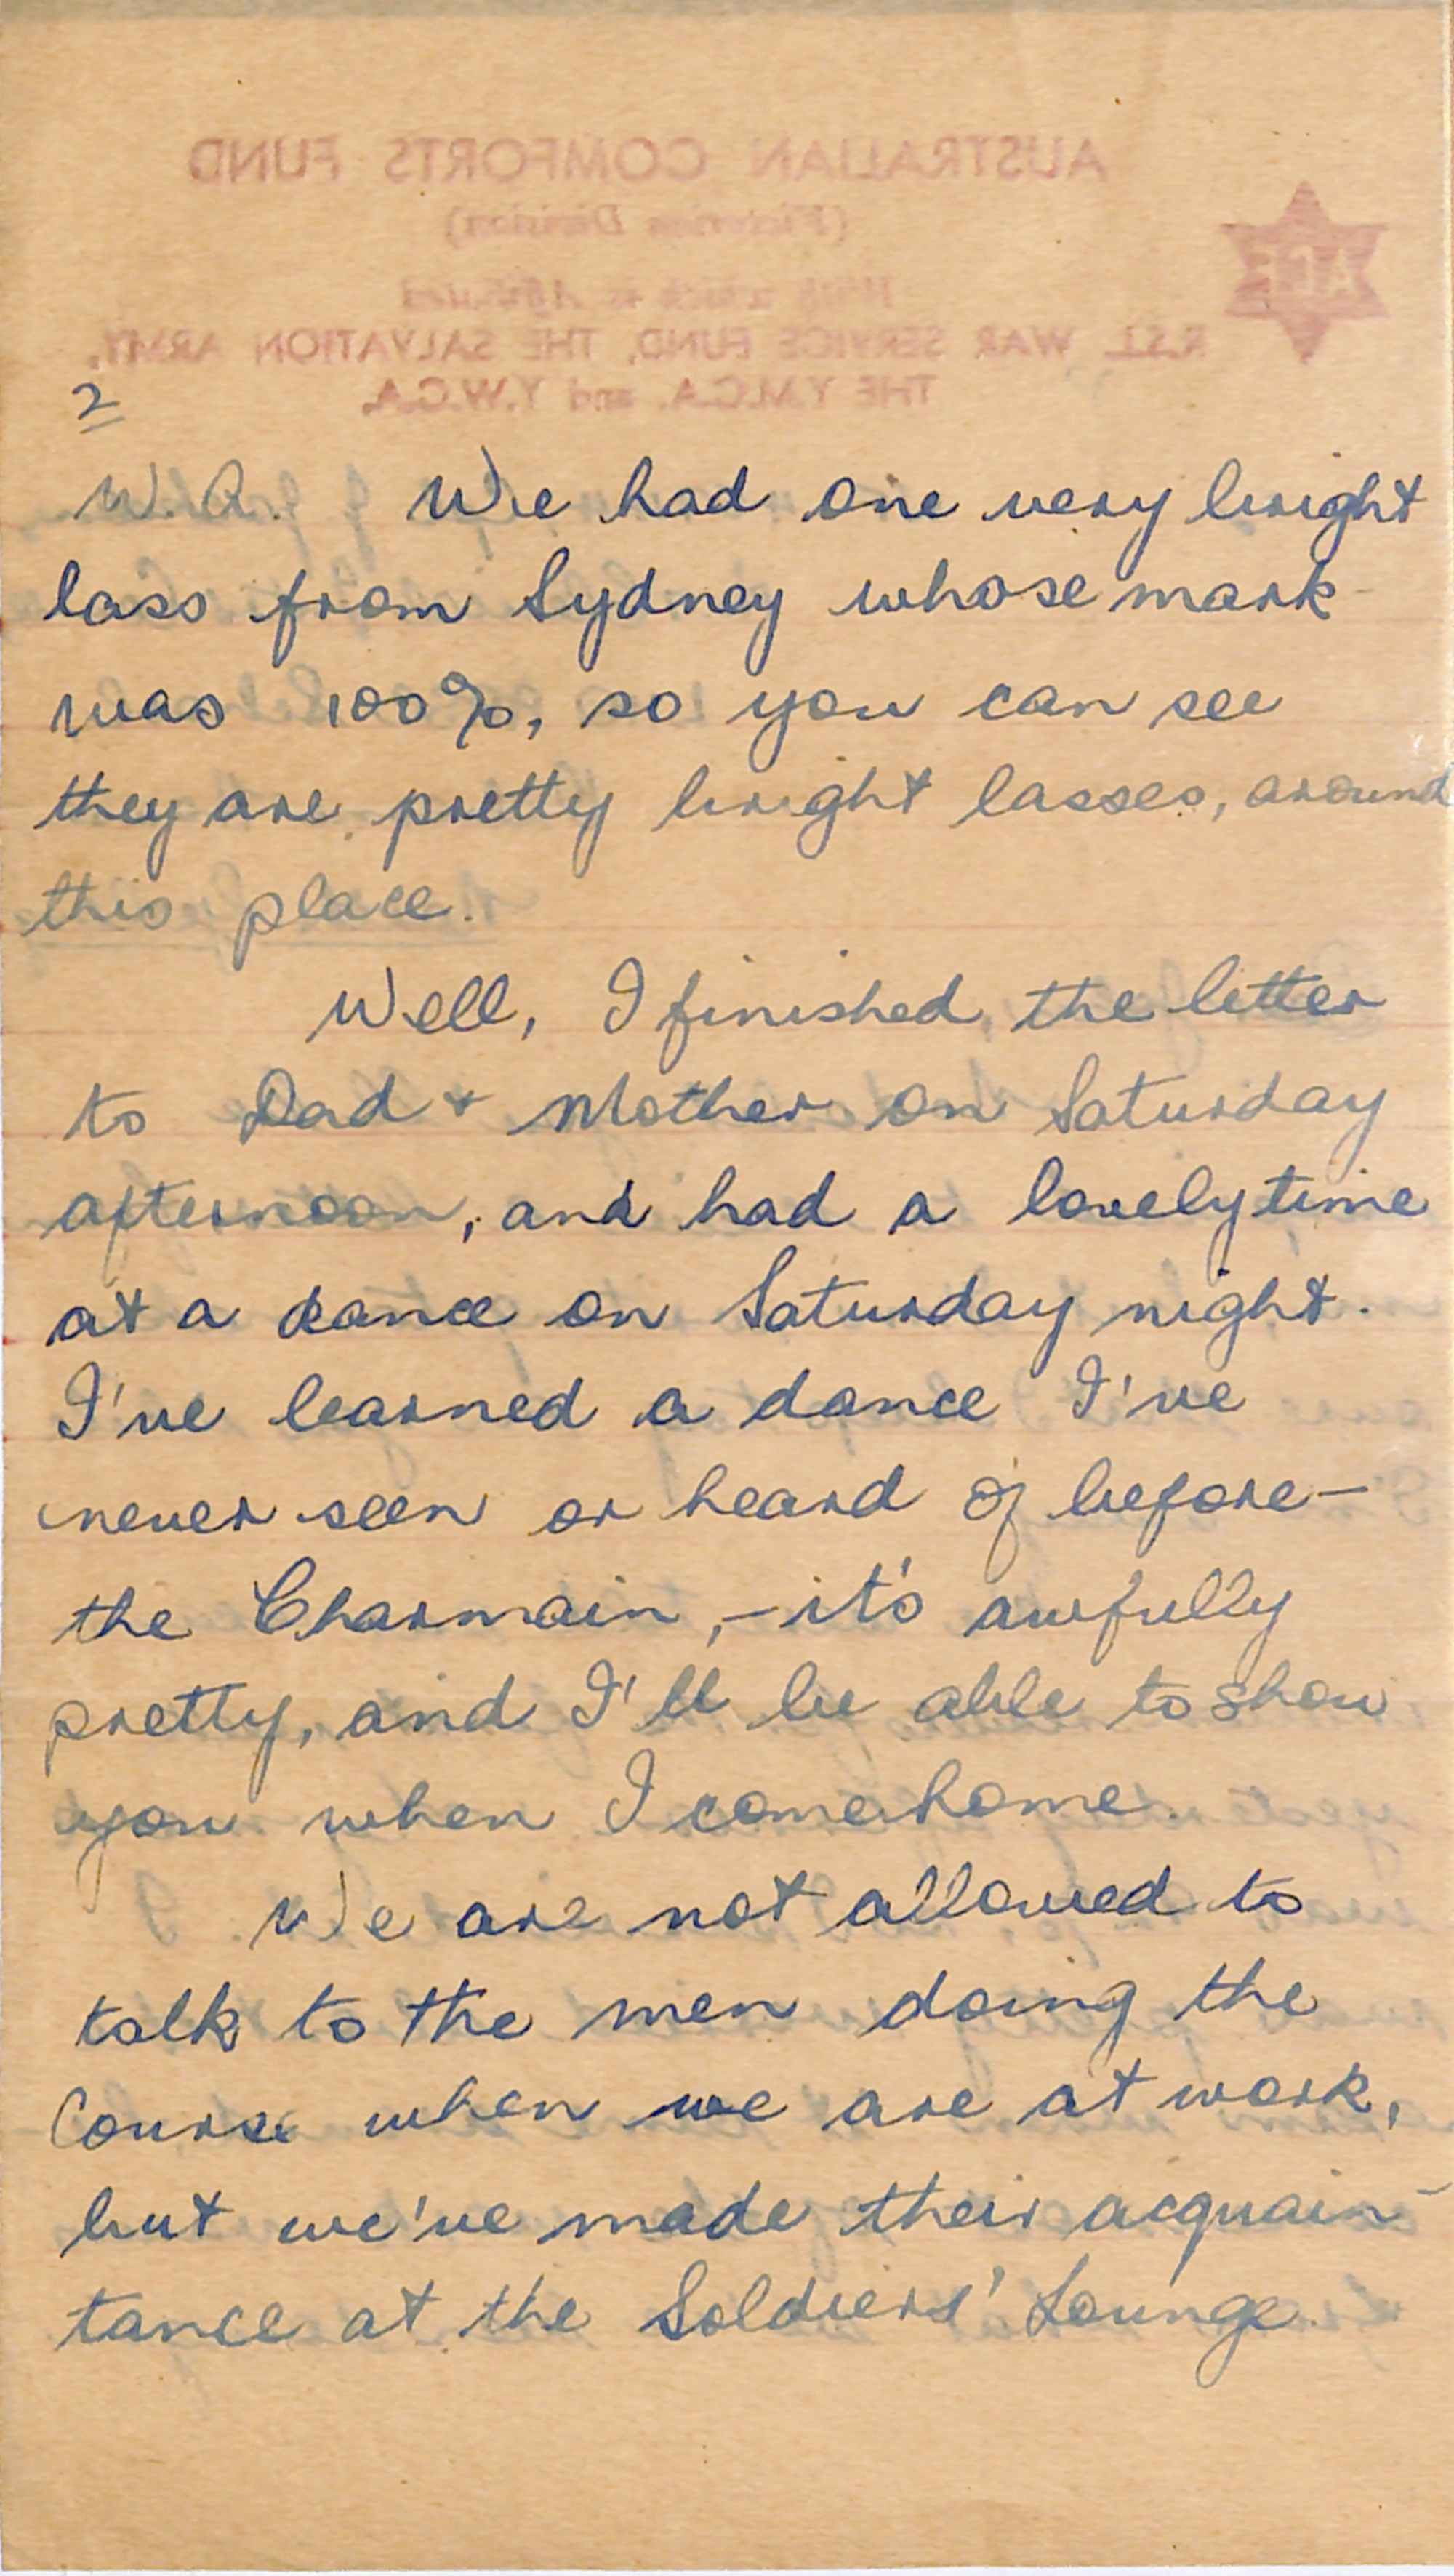 AUSTRALIAN COMFORTS FUND
(Victorian Division)
With which is Affiliated
R.S.L. WAR SERVICE FUND, THE SALVATION ARMY,
THE Y.M.C.A. and Y.W.C.A.
ACF
2
W.A. We had one very bright
lass from Sydney whose mark
was 100%, so you can see
they are pretty bright lasses, around
this place.
Well, I finished the letter
to Dad & Mother on Saturday
afternoon, and had a lovely time
at a dance on Saturday night.
I've learned a dance I've
never seen or heard of before -
the Charmain, - it's awfully
pretty, and I'll be able to show
you when I come home.
We are not allowed to
talk to the men doing the
Course when we are at work,
but we've made their acquain-
tance at the Soldiers' Lounge.